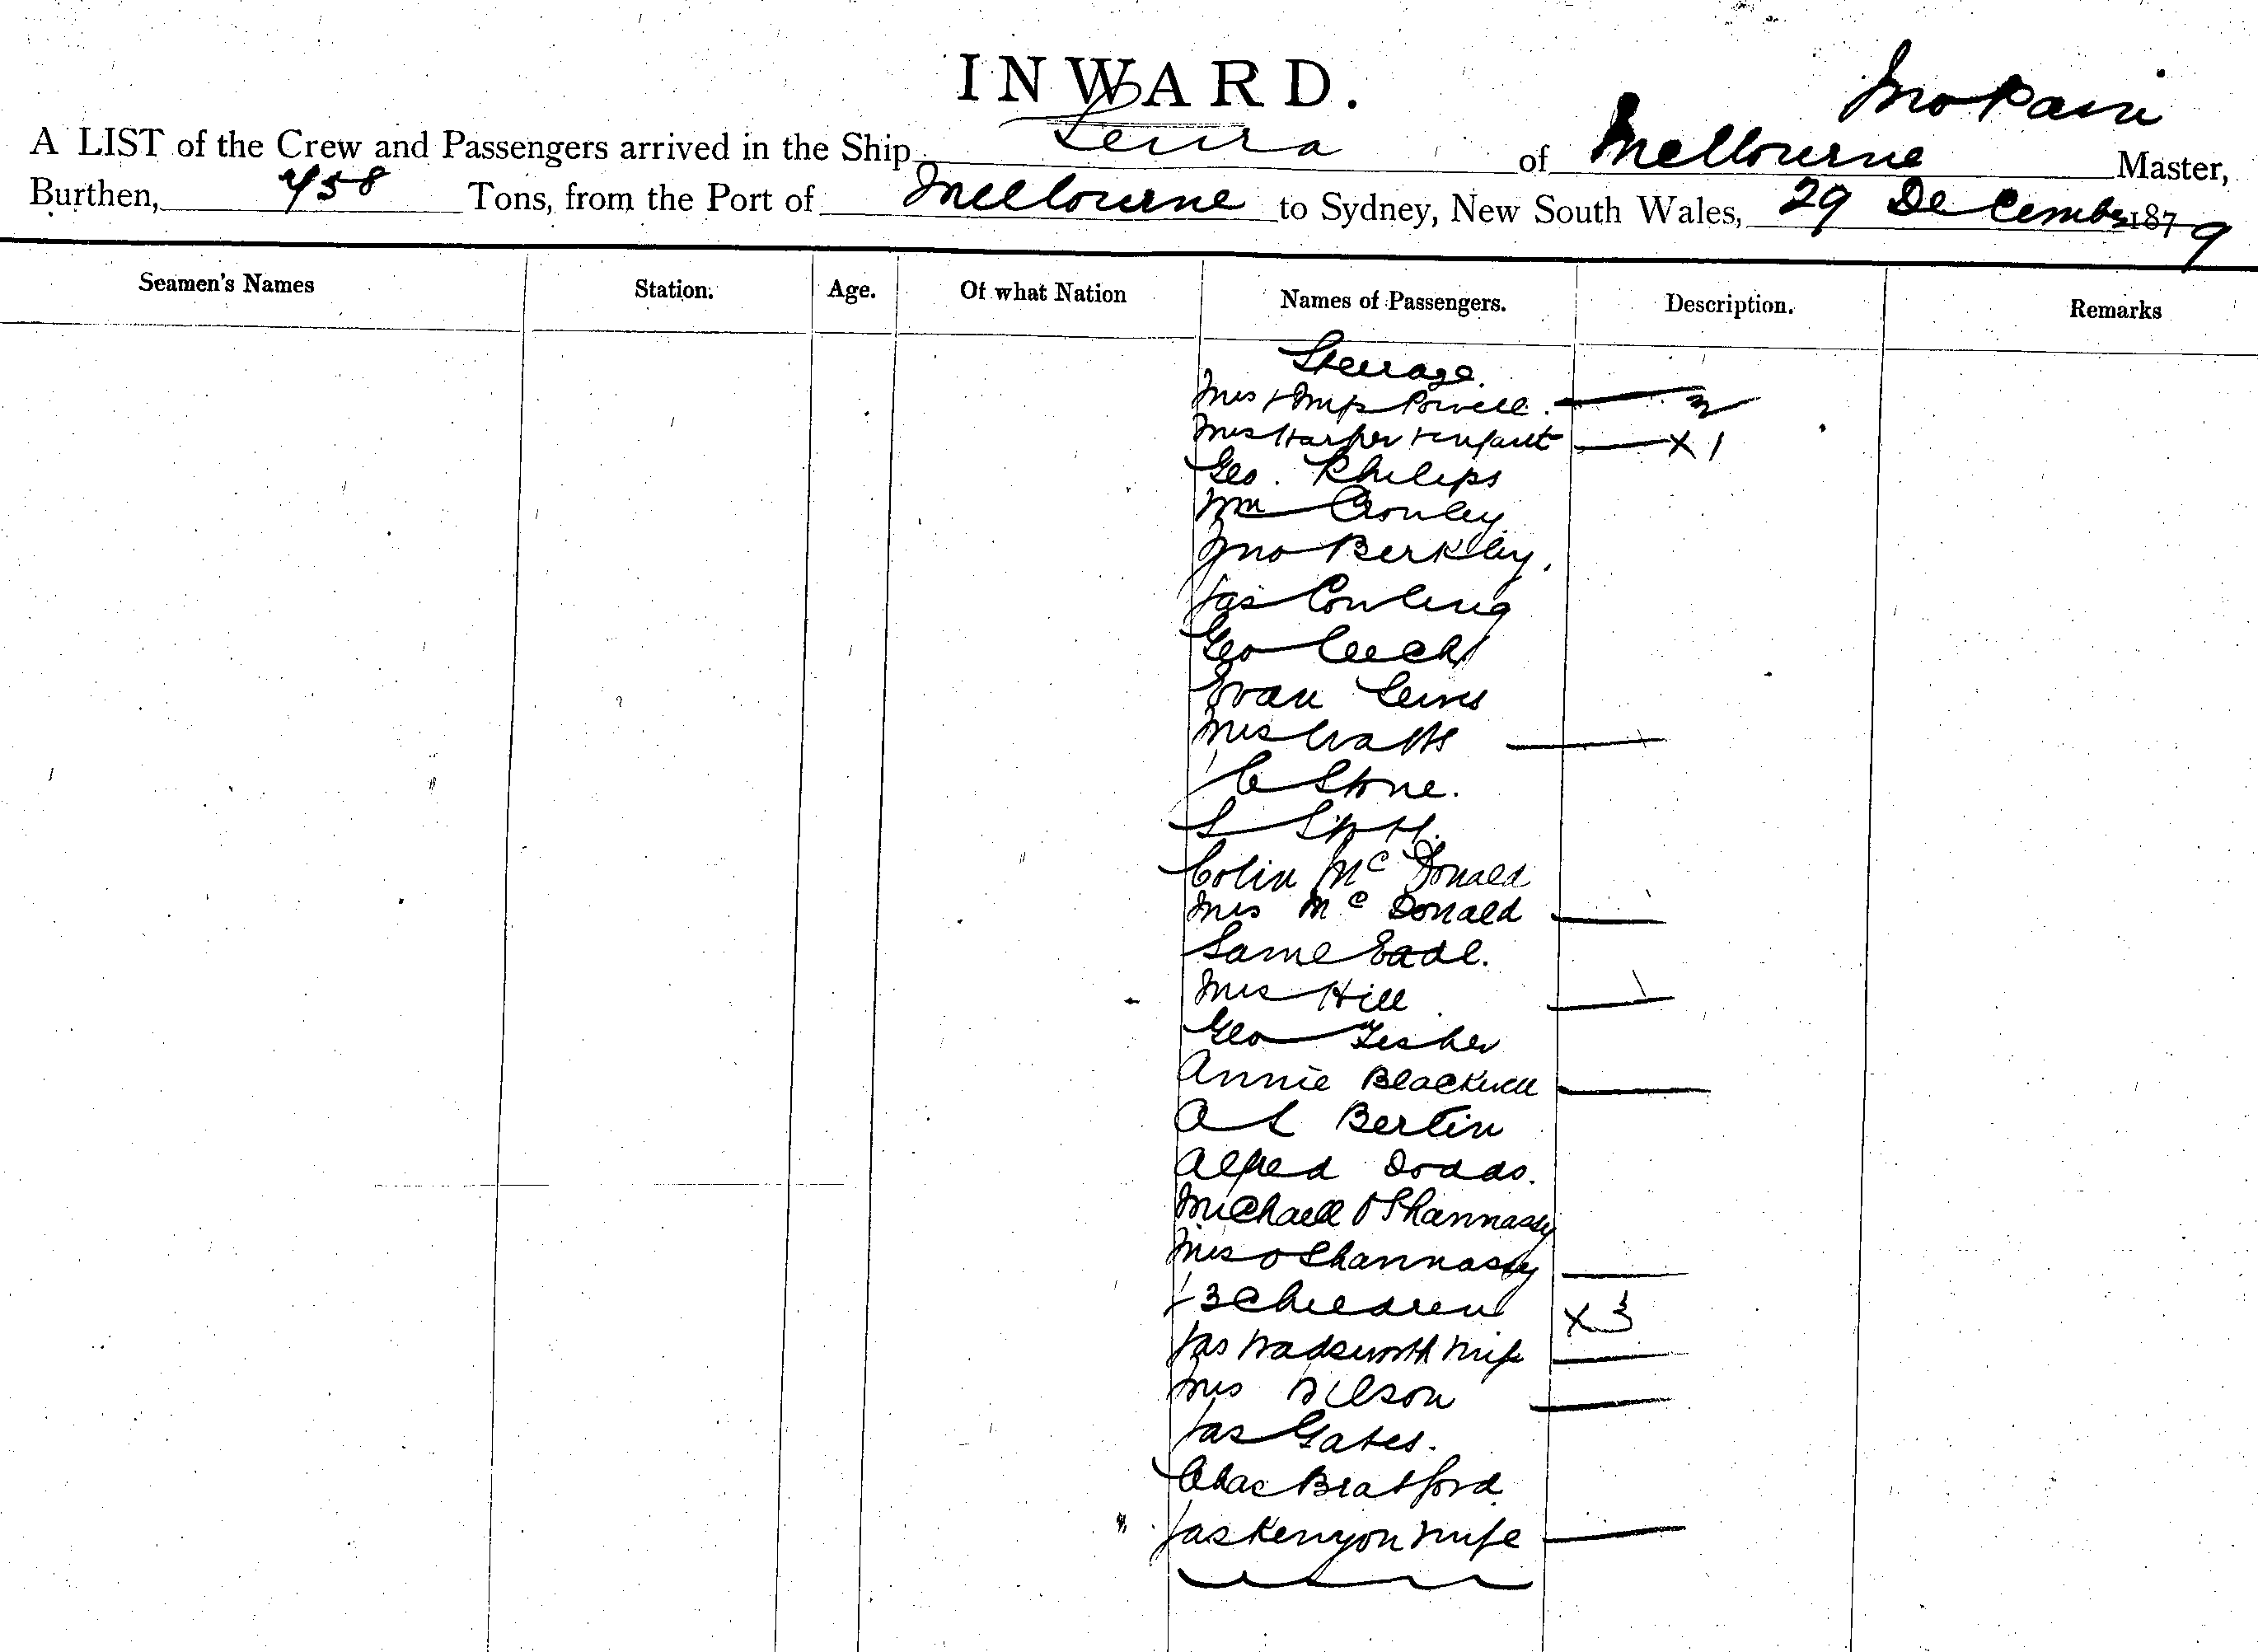 INWARD.
Jno Pain
A LIST of the Crew and Passengers arrived in the Ship Leura of Melbourne Master,
Burthen, 458 Tons, from the Port of Melbourne to Sydney, New South Wales, 29 December 1879
Seamen's Names Station. Age. Of what Nation Names of Passengers. Description. Remarks
Steerage.
Mrs + Miss Powell. 2
Mrs Harper + infant X 1
Geo. Philips
Wm Crowley
Jno Berkley.
Jas Cowling
Geo Leech
Evan Lewis
Mrs Watts
C Stone.
S
Colin McDonald
Mrs McDonald
Saml Eade.
Mrs Hill
Geo Fisher
Annie Blackwell
A L Bertin
Alfred Dodds.
Michaell O Shannassy
Mrs O Shannassy
+ 3 Children X 3
Jas Wadsworth Wife
Mrs Wilson
Jas Gates.
Chas Bratford
Jas Kenyon Wife